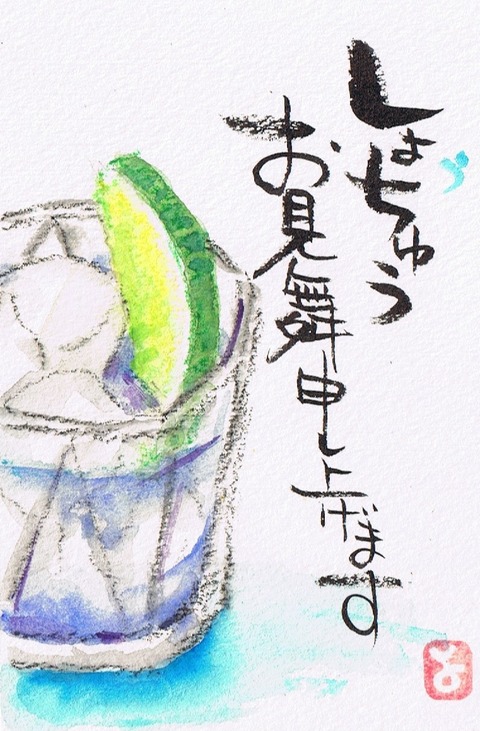 しょちゅう
お見舞申し上げます
と